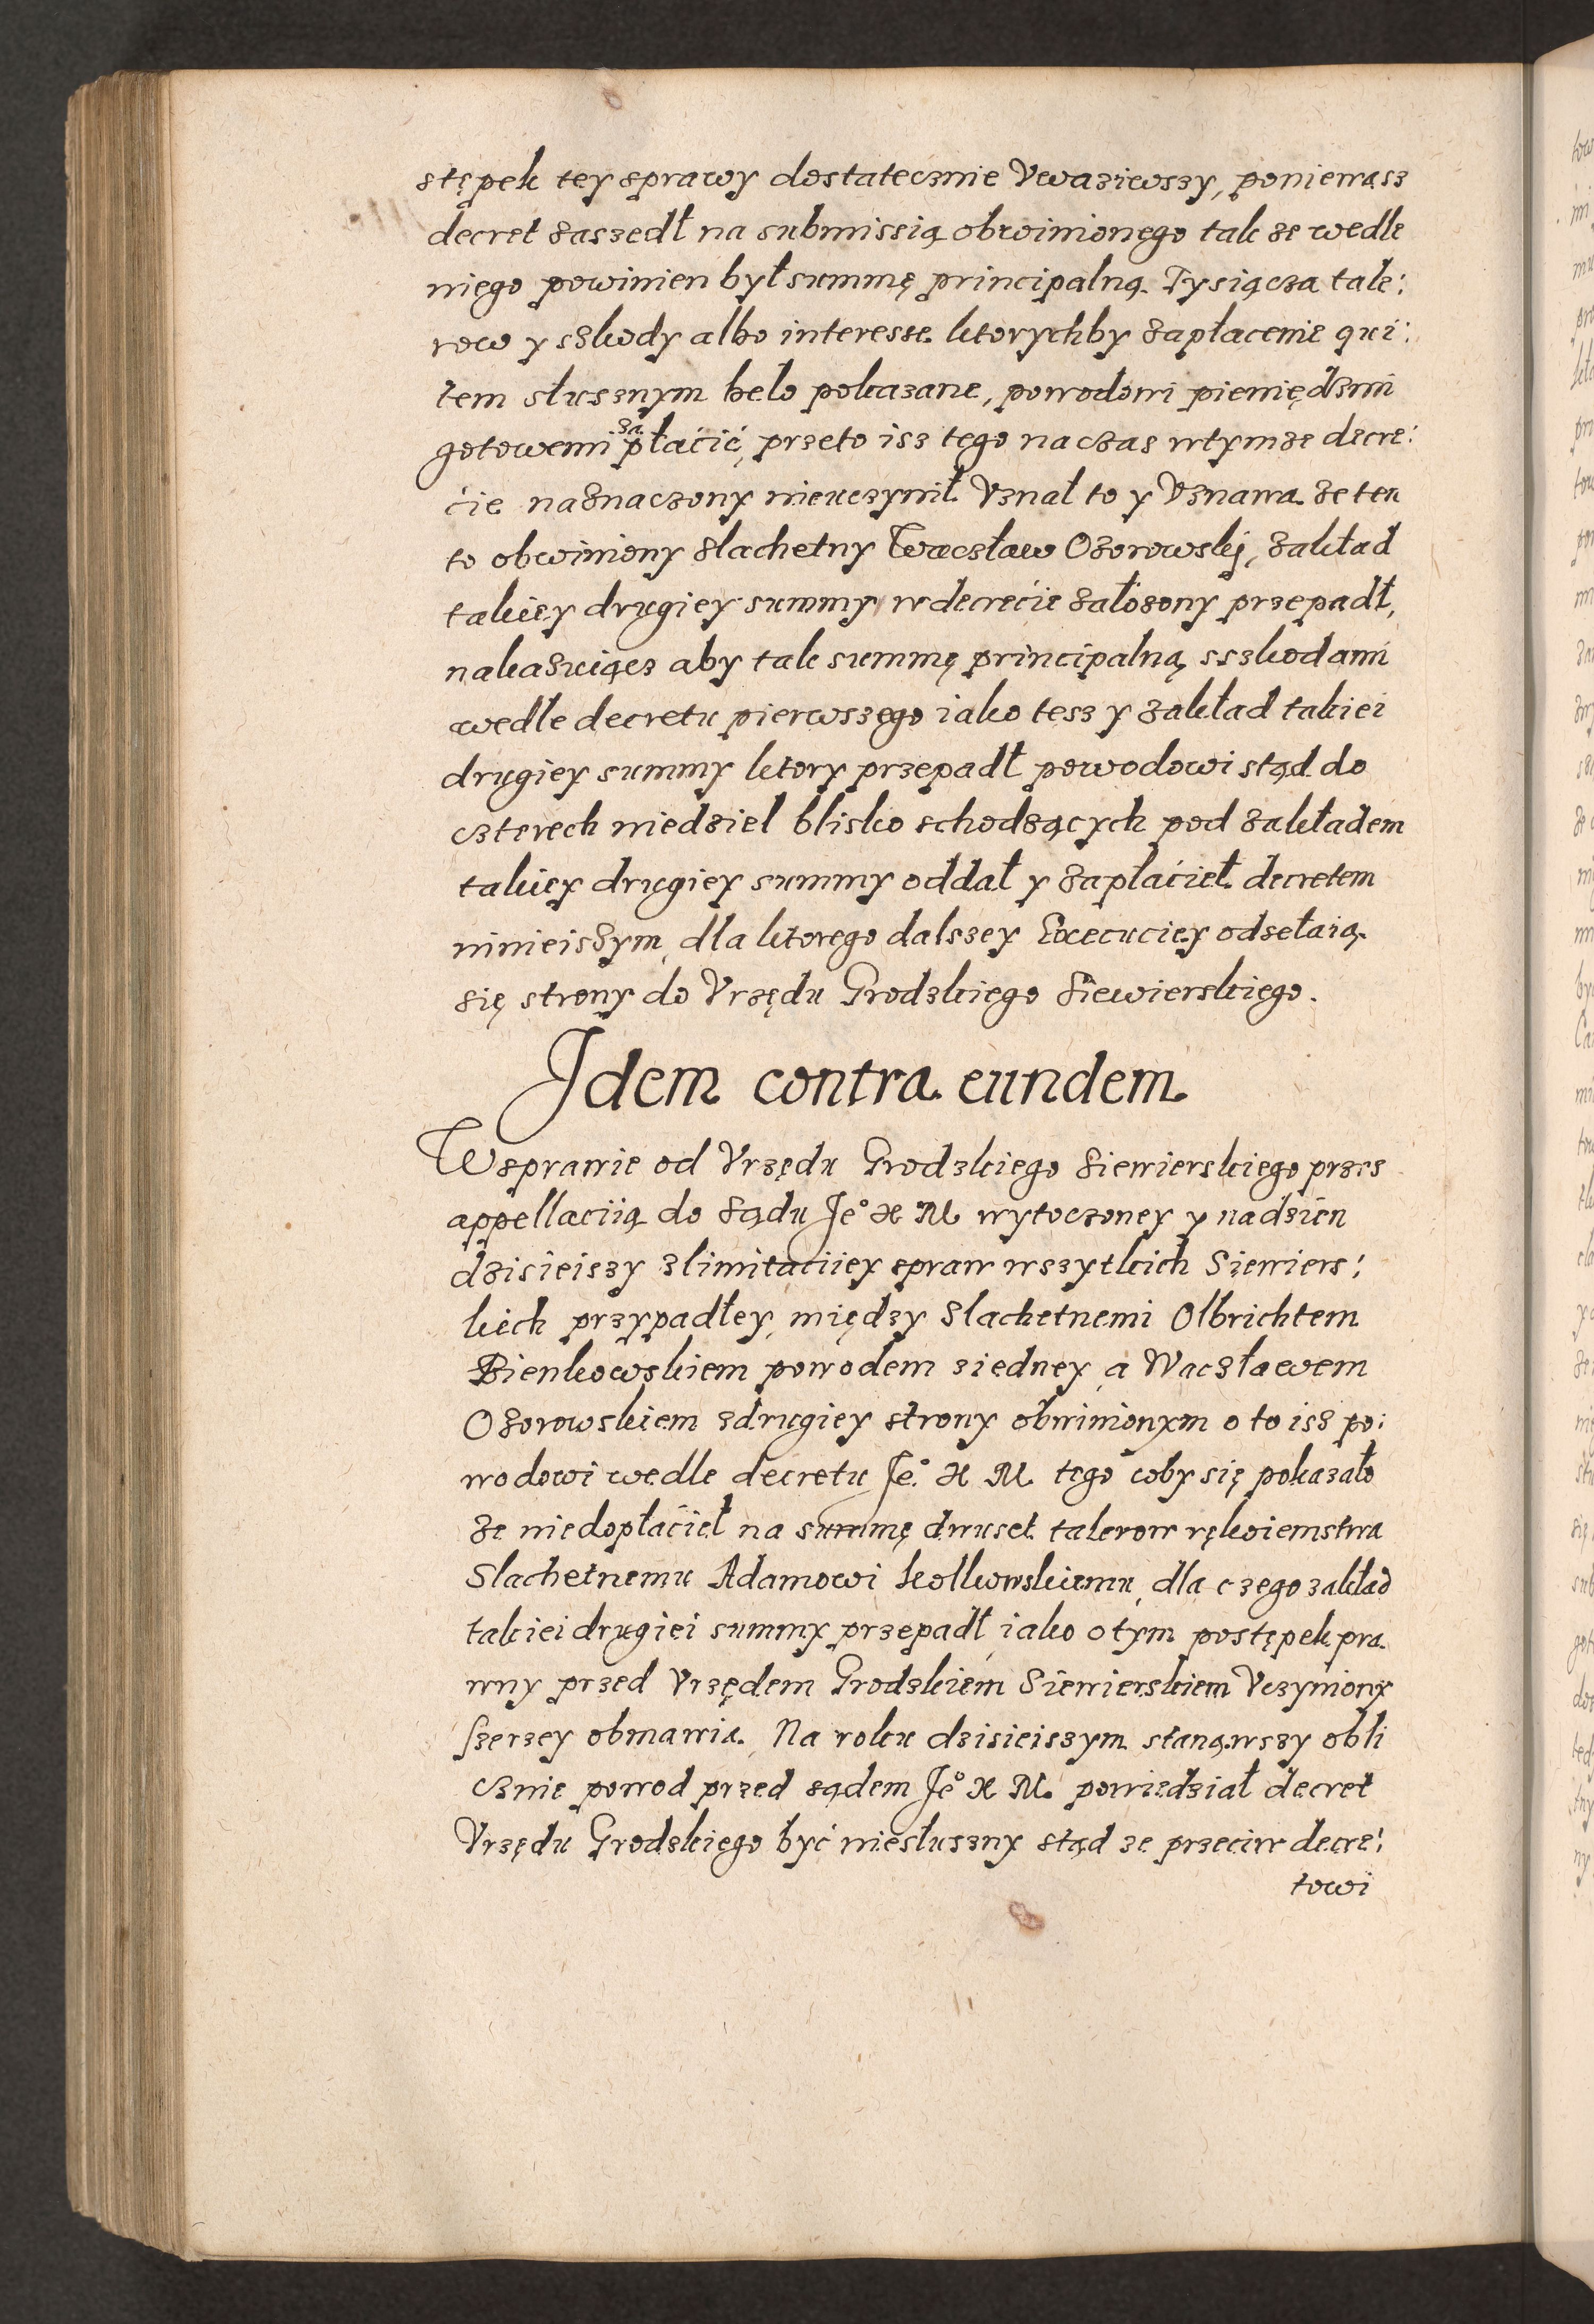 stępek tey sprawy dostatecznie Uwaziewszy, poniewasz
decret zaszedł na submissią obwinionego tak ze wedle
niego powinien był summę principalną Tysiącza tale:
row y szkody albo interesse ktorychby zapłacenie qui:
tem słusznym beło pokazane, powodowi pieniędzmi
gotowemi zapłaćić, przeto isz tego na czas wtymze decre:
ćie naznaczony nieuczynił Uznał to y Uznawa ze ten
to obwiniony slachetny Wacsław Ozorowskj, zakład
takiey drugiey summy w decrećie założony przepadł,
nakazuiącz aby tak summę principalną sszkodami
wedle decretu pierwszego iako tesz y zakład takiei
drugiey summy ktory przepadł powodowi stąd do
czterech niedziel blisko schodzących pod zakładem
takiey drugiey summy oddał y zapłaćieł decretem
ninieiszym, dla ktorego dalszey Execuciey odsełaią
się strony do Urzędu Grodzkiego Siewierskiego.
Jdem contra eundem
W sprawie od Urzędu Grodzkiego Siewierskiego przes
appellaciią do sądu Je° X M wytoczoney y na dzień
dzisieiszy zlimitaciiey spraw wszytkich Siewiers:
kich przypadłey, między Slachetnemi Olbrichtem
Bienkowskiem powodem ziedney, a Waczławem
Ozorowskiem zdrugiey strony obwinionym o to isz po:
wodowi wedle decretu Je° X M tego coby się pokazało
ze niedopłaćieł na summę dwuset talerow rękoiemstwa
Slachetnemu Adamowi Kolkowskiemu, dla czego zakład
takiei drugiei summy przepadł, iako o tym postępek pra
wny przed Urzędem Grodzkiem Siewierskiem Uczyniony
szerzey obmawia. Na roku dzisieiszym stanąwszy obli
cznie powod przed sądem Je° X M. powiedział decret
Urzędu Grodzkiego być niesłuszny stąd ze przeciw decre:
towi